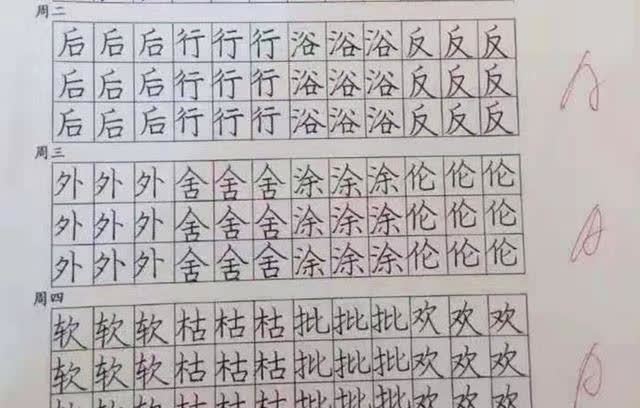 周二
后后后行行行浴浴浴反反反
后后后行行行浴浴浴反反反
后后后行行行浴浴浴反反反
A
周三
外外外舍舍舍涂涂涂伦伦伦
外外外舍舍舍涂涂涂伦伦伦
外外外舍舍舍涂涂涂伦伦伦
A
周四
软软软枯枯枯批批批欢欢欢
软软软枯枯枯批批批欢欢欢
软软软枯枯枯批批批欢欢欢
A